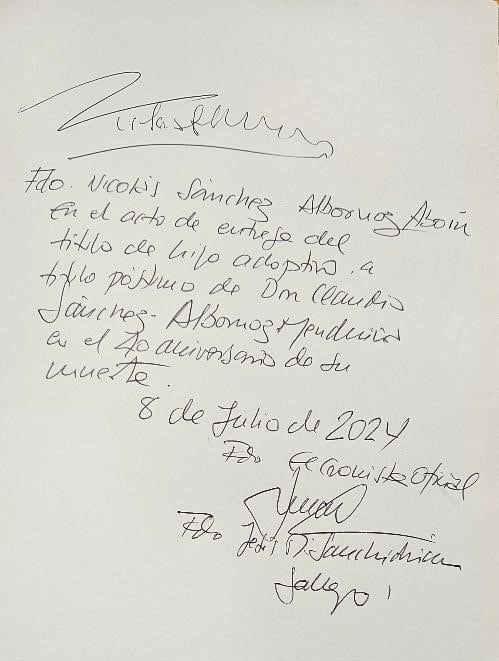 Fdo. Nicolás Sánchez-Albornoz Aboín
En el acto de entrega del
título de hijo adoptivo, a
título póstumo de Don Claudio
Sánchez-Albornoz Menduiña
en el 40 aniversario de su
muerte.
8 de Julio de 2024
Fdo El Cronista Oficial
Fdo Jesús Mª Sanchidrián
Gallego